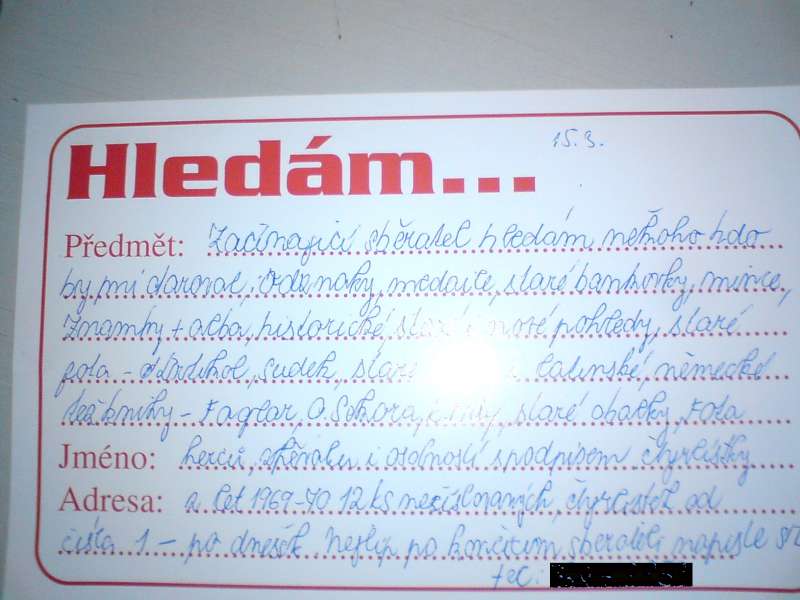 Hledám...
15.3.
Předmět: Začínající sběratel hledám někoho kdo
by mi daroval, Odznaky, medaile, staré bankovky, mince,
Známky + alba, historické, staré i nové pohledy, staré
fota - Drtikol, Sudek, staré i latinské, německé
též knihy - Foglar, O. Sekora, staré obálky, Fota
Jméno: herců, zpěváků i osobností s podpisem, čtyřlístky
Adresa: z let 1969-70 12 ks nečíslovaných, čtyřlístek od
čísla 1 - po dnešek. Nejlíp po končícím sběrateli, napište
tel: